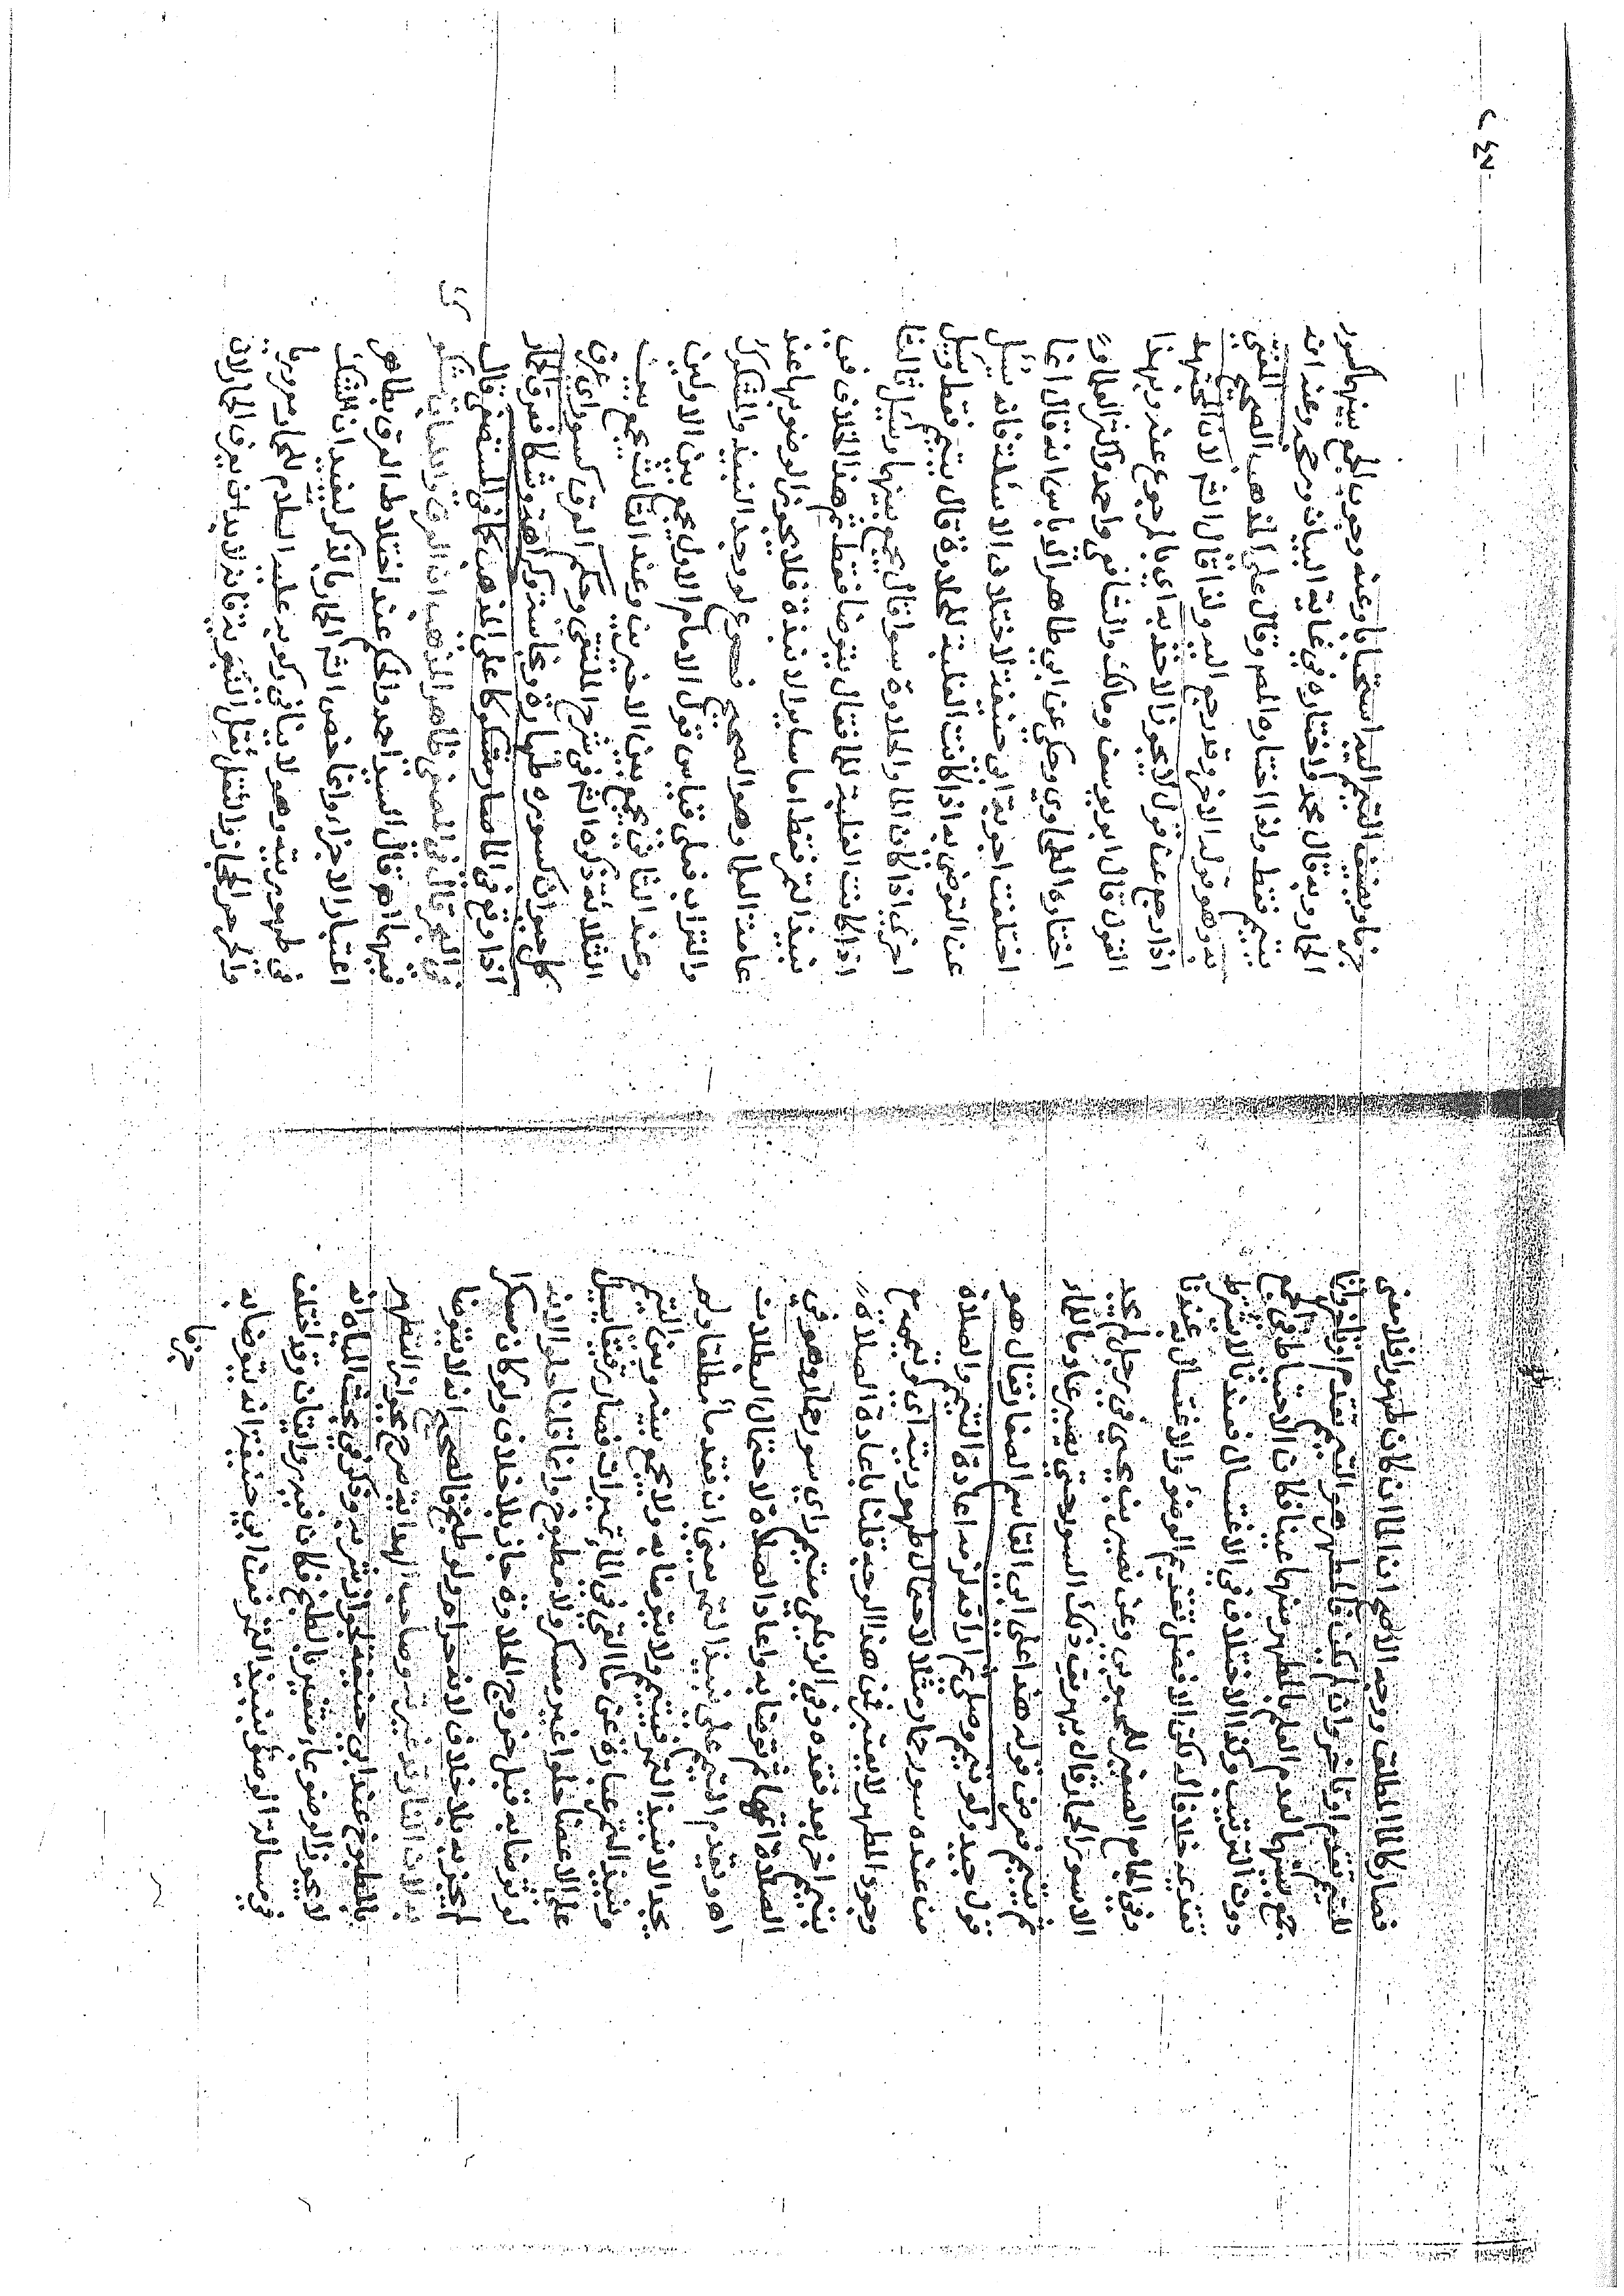 فصار كالماء المطلق ووجه الاصح ان الماء ان كان طهورا فلا معنى
للتيمم تقدم او تاخر وان لم يكن فالمطهر هو التيمم تقدم او تاخر وانما
يجمع بينهما لعدم العلم بالمطهر منهما عينا فكان الاحتياط في الجمع
دون الترتيب وكذا الاختلاف في الاغتسال فعندنا لا يشترط
تقديمه خلافا له لكن الافضل تقديم الوضوء والاغتسال به عندنا
وفي الجامع الصغير للمحبوبي وعن نصير بن يحيى في رجل لم يجد
الا سور الحمار قال يهريق ذلك السور حتى يصير عادما للماء
ثم يتيمم فعرض قوله هذا على ابي القاسم الصفار فقال هو
قول جيد ولو تيمم وصلى ثم اراقه لزمه اعادة التيمم والصلاة
من عنده سور حمار مثلا لاحتمال طهوريته اي لو تيمم مع
وجود المطهر لا يعتبر فمن هذا الوجه قلنا باعادة الصلاة
يتيمم اخر بعد فقده وفي الزيلعي متيمم راى سور حمار وهو في
الصلاة اتمها ثم توضا به واعاد الصلاة لاحتمال البطلان
اهـ ويقدم التيمم على نبيذ التمر يعني ان فقد ماء مطلقا ولم
يجد الا نبيذ التمر فيتيمم ولا يتوضا به ولا يجمع بينه وبين التيمم
ونبيذ التمر عبارة عن ماء القي فيه تميرات فصار رقيقا يسيل
على الاعضاء حلوا غير مسكر ولا مطبوخ وانما قلنا حلوا لانه
لو توضا به قبل خروج الحلاوة جاز بلا خلاف ولو كان مسكرا
لم يجز به بلا خلاف لانه حرام ولو طبخ فالصحيح انه لا يتوضا
به لان النار قد غيرته وصاحب الهداية صرح بجواز التطهير
بالمطبوخ عند ابي حنيفة لجواز شربه وذكر في بحث المياه انه
لا يجوز الوضوء بماء متغير بالطبخ فكان فيه روايتان وقد اختلف
في مسالة الوضوء بنبيذ التمر فعن ابي حنيفة انه يتوضا به
جزما
جزما ويضيف التيمم اليه استحبابا وعنه وجوب الجمع بينهما كسور
الحمار وبه قال محمد واختاره في غاية البيان ورجحه وعنه انه
يتيمم فقط ولذا اختاره المص وقال على المذهب الصحيح المفتى
به وهو قوله الاخر وقد رجع اليه ولذا قال الشم لان المجتهد
اذا رجع عن قول لا يجوز الاخذ به اي بالمرجوع عنه وبهذا
القول قال ابو يوسف ومالك والشافعي واحمد واكثر العلماء و
اختاره الطحاوي وحكي عن ابي طاهر الدباس انه قال انما
اختلفت اجوبة ابي حنيفة لاختلاف الاسئلة فانه سئل
عن التوضي به اذا كانت الغلبة للحلاوة قال يتيمم فقط وسئل
اخرى اذا كان الماء والحلاوة سواء قال يجمع بينهما وسئل ثالثا
اذا كانت الغلبة للماء فقال يتوضا فقط ثم هذا الخلاف في
نبيذ التمر فقط اما سائر الانبذة فلا يجوز الوضوء بها عند
عامة العلماء وهو الصحيح فروع لو وجد النبيذ والمشكوك
والتراب فعلى قياس قول الامام الاول يجمع بين الاولين
وعند الثاني يجمع بين الاخيرين وعند الثالث يجمع بين
الثلاثة ذكره الشم في شرح الملتقى وحكم العرق كسور اي عرق
كل حيوان كسوره طهارة ونجاسة وكراهة وشكا فعرق الحمار
اذا وقع في الماء صار مشكوكا على المذهب كما في المستصفى قال
في البحر قال في المصفى ظاهر المذهب ان العرق واللعاب مشكوك
فيهما اهـ قال السيد احمد والحكم عند اختلاط العرق بظاهر
اعتبار الاجزاء وانما خص الشم الحمار بالذكر ليفيد ان الشك
في طهوريته وهو لا ينافي ركوبه عليه السلام للحمار معروريا
والحر حر الحجاز والثقل ثقل النبوة فانه لا بد ان يعرق الحمار لان